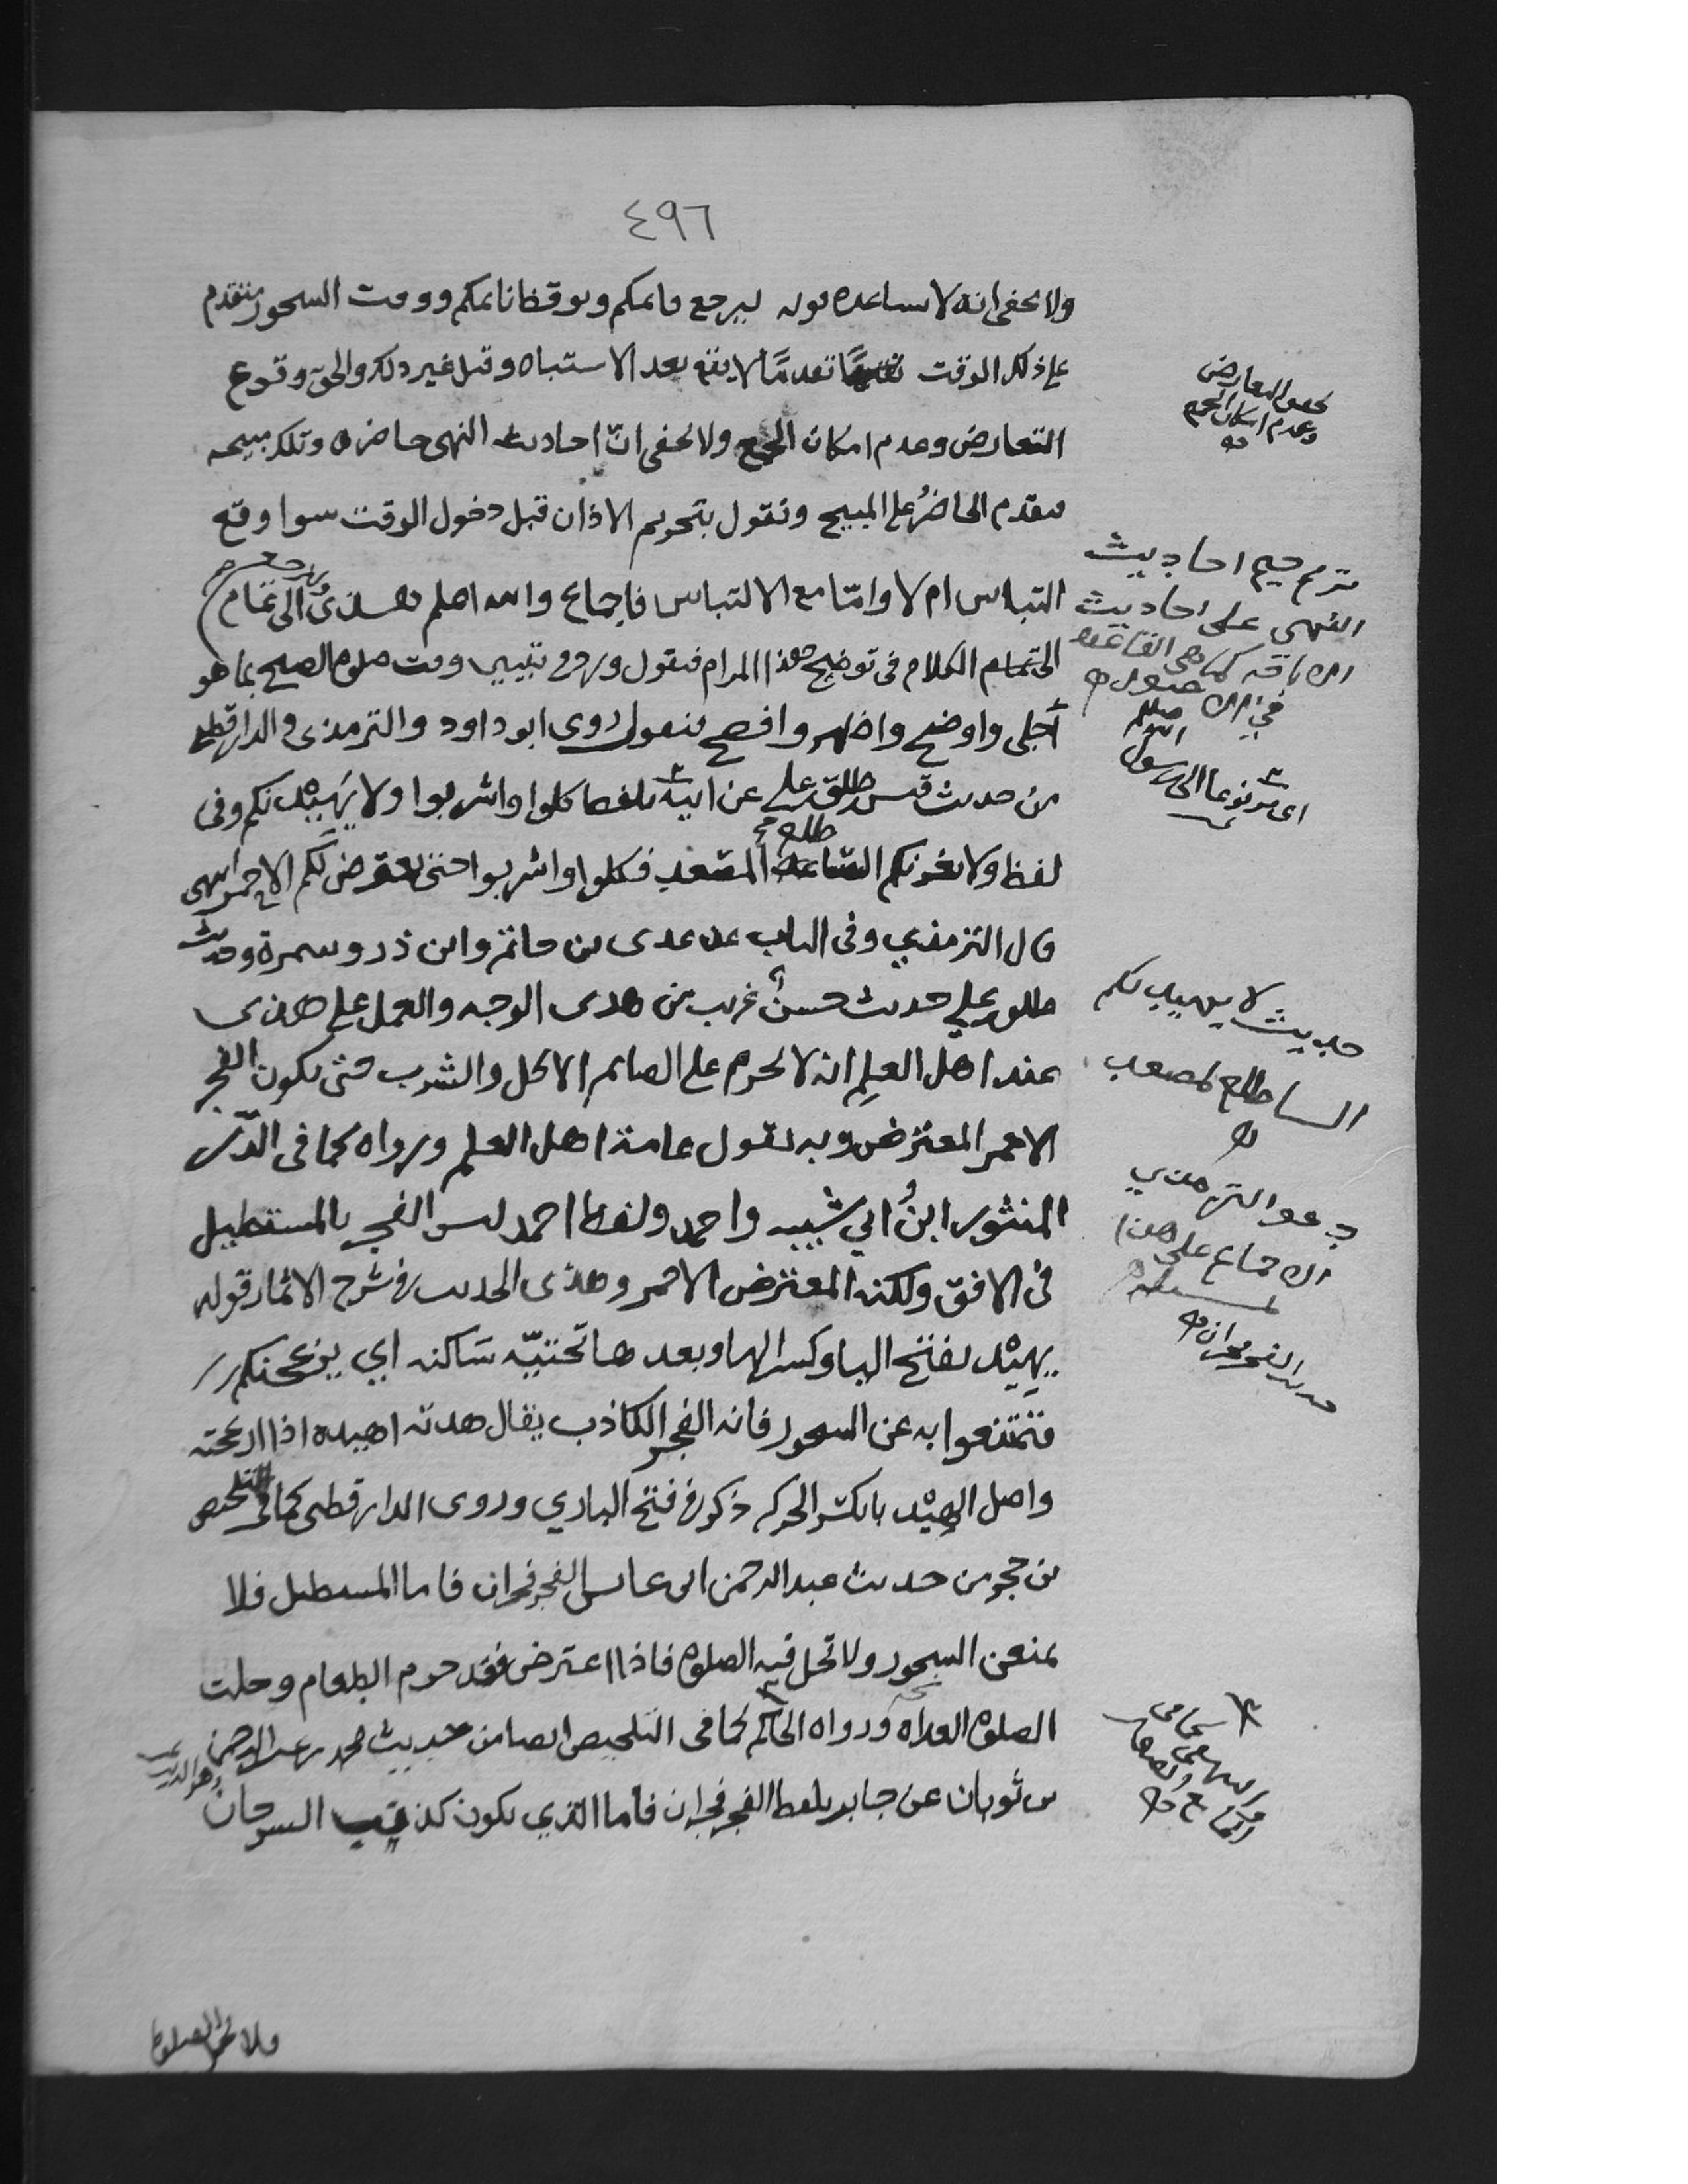 ٤٩٦
ولا يخفى انه لا يساعده قوله ليرجع قائمكم ويوقظ نائمكم ووقت السحور متقدم
على ذلك الوقت تقدمًا لا يقع بعد الاستباه وقيل غير ذلك والحق وقوع
التعارض وعدم امكان الجمع ولا يخفى انّ احاديث النهى حاضره وتلك مبيحه
فيقدم الحاضرُ على المبيح ونقول بتحريم الاذان قبل دخول الوقت سوا وقع
التباس ام لا وامّا مع الالتباس فاجماع والله اعلم
الى تمام الكلام فى توضيح هذا المرام فنقول وقت صلوة الصبح بما هو
أجلى واوضح واظهر وافصح فنقول روى ابو داود والترمذى والدارقطنى
من حديث قيس بن طلق بن على عن ابيه بلفظ كلوا واشربوا ولا يَهيْدنكم وفى
لفظ ولا يغرنكم الساطع المصعد فكلوا واشربوا حتى يعترض لكم الاحمر انتهى
قال الترمذي وفى الباب عن عدى بن حاتم وابى ذر وسمرة وحديث
طلق بن على حديث حسنٌ غريب من هذى الوجه والعمل على هذى
عند اهل العلم انه لا يحرم على الصائم الاكل والشرب حتى يكون الفجر
الاحمر المعترض وبه يقول عامة اهل العلم ورواه كما فى الدّر
المنثور ابنُ ابي شيبه واحمد ولفظ احمد ليس الفجر بالمستطيل
فى الافق ولكنه المعترض الاحمر وهذى الحديث فى شرح الاثمار قوله
يهيْد بفتح اليا وكسر الها وبعدها تحتيّه ساكنه اي يزعجنكم
فتمتنعوا به عن السحور فانه الفجر الكاذب يقال هدته اهيده اذا ازعجته
واصل الهيْد بالكسر الحركه ذكره فى فتح الباري وروى الدارقطنى كما فى التلخيص
بن حجر من حديث عبد الرحمن ابن عايش الفجر فجران فاما المستطيل فلا
يمنعن السحور ولا تحل فيه الصلوة فاذا اعترض فقد حرم الطعام وحلت
الصلوة الغداه ورواه الحاكم كما فى التلخيص ايضا من حديث محمد بن عبد الرحمن
بن ثوبان عن جابر بلفظ الفجر فجران فاما الذي يكون كذنب السرحان
فلا تحل الصلوة
تحقق التعارض
وعدم امكان الجمع
ترجيح احاديث
النهي على احاديث
الاباحه كما هى القاعده
في الاصول
اى مرفوعا الى رسول
الله صلعم
حديث لا يهيدنكم
الساطع المصعد
دعوا الترمذي
الاجماع على هذا
حديث الفجر فجران